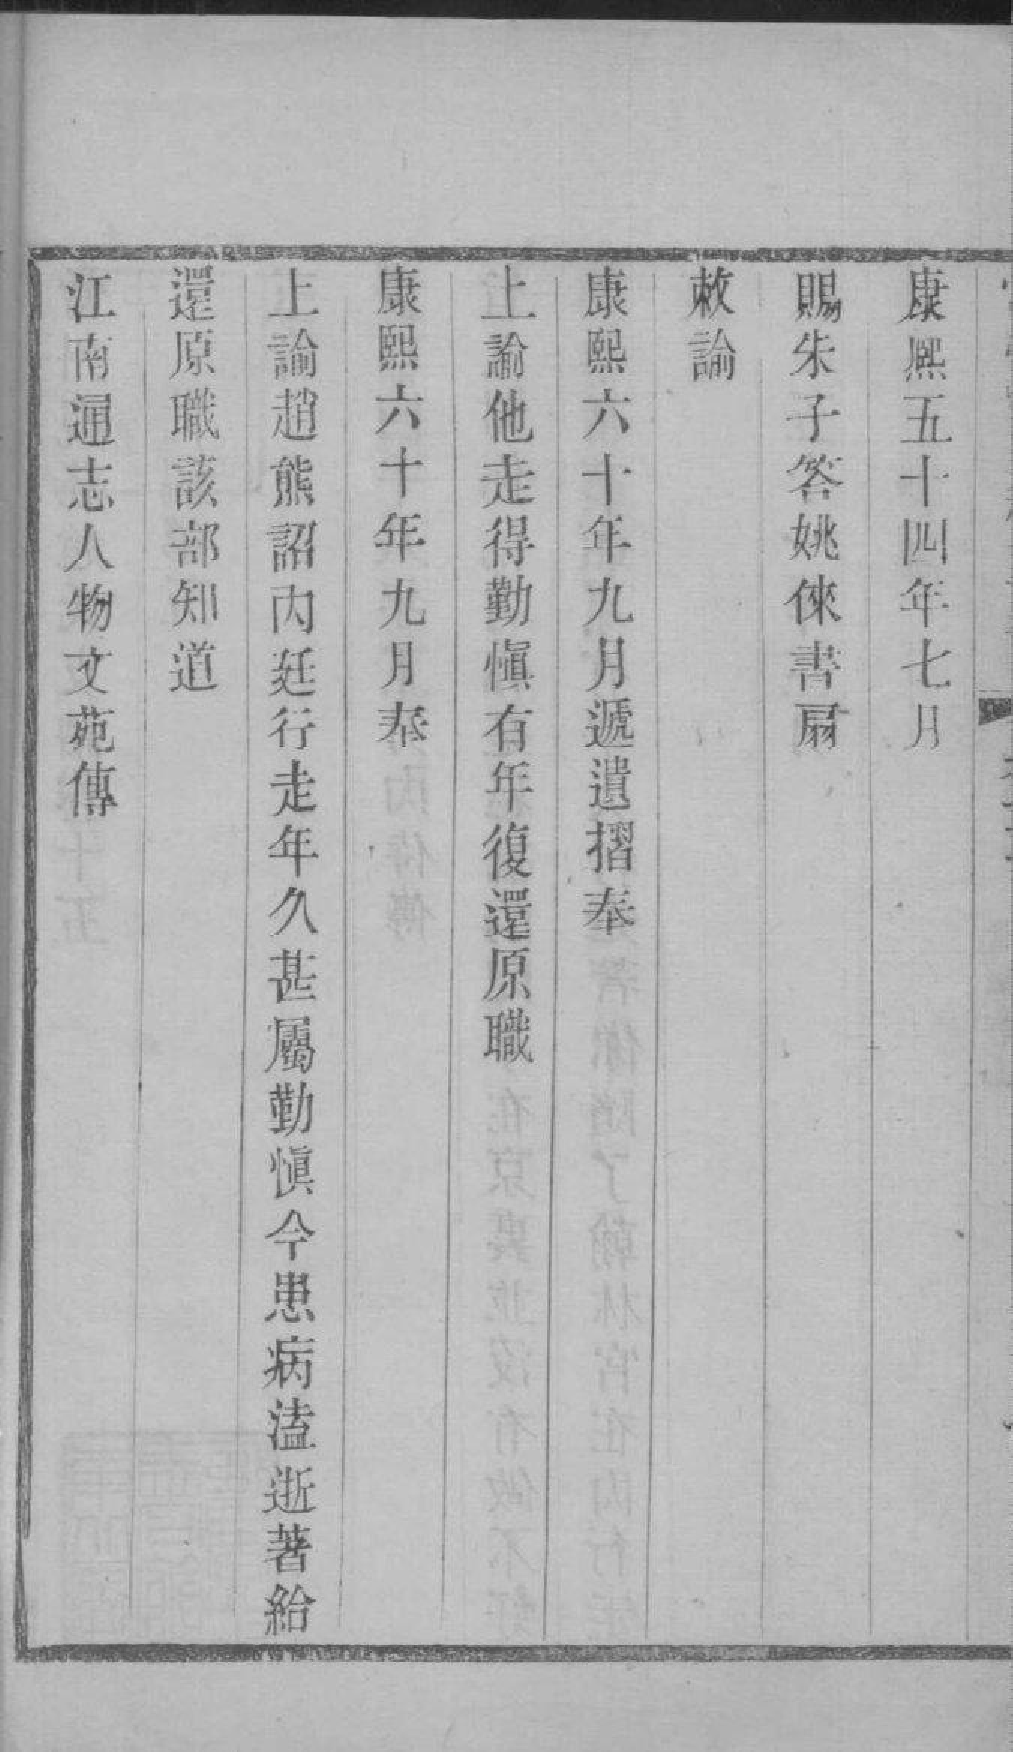 康熙五十四年七月
賜朱子答姚倈書扇
敕諭
康熙六十年九月遞遺摺奉
上諭他走得勤愼有年復還原職
康熙六十年九月奉
上諭趙熊詔內廷行走年久甚屬勤愼今患病溘逝著給
還原職該部知道
江南通志人物文苑傳